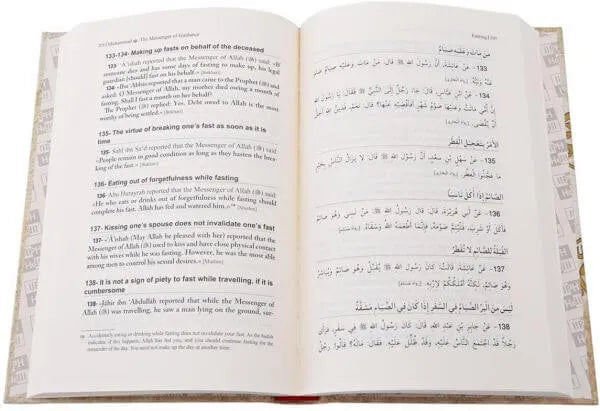 Muhammad ﷺ The Messenger of Guidance
133-134- Making up fasts on behalf of the deceased
133- 'A'ishah reported that the Messenger of Allah (ﷺ) said: «If
someone dies and has some days of fasting to make up, his legal
guardian [should] fast on his behalf.» [Bukhari]
134- «Ibn 'Abbas reported that a man came to the Prophet (ﷺ) and said:
O Messenger of Allah, my mother died owing a month of
fasting. Shall I fast a month on her behalf?
The Prophet (ﷺ) replied: Yes. Debt owed to Allah is the most
worthy of being settled.» [Bukhari]
135- The virtue of breaking one's fast as soon as it is
time
135- Sahl ibn Sa'd reported that the Messenger of Allah (ﷺ) said:
«People remain in good condition as long as they hasten the break-
ing of the fast.» [Bukhari]
136- Eating out of forgetfulness while fasting
136- Abu Hurayrah reported that the Messenger of Allah (ﷺ) said:
«He who eats or drinks out of forgetfulness while fasting should
complete his fast. Allah has fed and watered him.» [Muslim]
137- Kissing one's spouse does not invalidate one's fast
137- «'A'ishah (May Allah be pleased with her) reported that the
Messenger of Allah (ﷺ) used to kiss and have close physical contact
with his wives while he was fasting. However, he was the most able
among men to control his sexual desires.» [Muslim]
138- It is not a sign of piety to fast while travelling, if it is
cumbersome
138- «Jābir ibn 'Abdullah reported that while the Messenger of
Allah (ﷺ) was travelling, he saw a man lying on the ground, sur-
Accidentally eating or drinking while fasting does not invalidate your fast. As the hadith
indicates, if this happens, Allah has fed you, and you should continue fasting for the
remainder of the day. You need not make up the day at another time.
Fasting
مَنْ مَاتَ وَعَلَيْهِ صِيَامٌ
133- عَنْ عَائِشَةَ، أَنَّ رَسُولَ اللهِ ﷺ قَالَ: مَنْ مَاتَ، وَعَلَيْهِ صِيَامٌ، صَامَ
عَنْهُ وَلِيُّهُ. [رواه البخاري]
134- عَنِ ابْنِ عَبَّاسٍ، قَالَ: جَاءَ رَجُلٌ إِلَى النَّبِيِّ ﷺ فَقَالَ: يَا رَسُولَ
اللهِ، إِنَّ أُمِّي مَاتَتْ وَعَلَيْهَا صَوْمُ شَهْرٍ أَفَأَقْضِيهِ عَنْهَا؟ قَالَ: نَعَمْ، فَدَيْنُ اللهِ أَحَقُّ
أَنْ يُقْضَى. [رواه البخاري]
الأَمْرُ بِتَعْجِيلِ الْفِطْرِ
135- عَنْ سَهْلِ بْنِ سَعْدٍ، أَنَّ رَسُولَ اللهِ ﷺ قَالَ: لَا يَزَالُ النَّاسُ بِخَيْرٍ
مَا عَجَّلُوا الْفِطْرَ. [رواه البخاري]
الصَّائِمُ إِذَا أَكَلَ نَاسِيًا
136- عَنْ أَبِي هُرَيْرَةَ، قَالَ: قَالَ رَسُولُ اللهِ ﷺ: مَنْ نَسِيَ وَهُوَ صَائِمٌ،
فَأَكَلَ أَوْ شَرِبَ، فَلْيُتِمَّ صَوْمَهُ، فَإِنَّمَا أَطْعَمَهُ اللهُ وَسَقَاهُ. [رواه مسلم]
الْقُبْلَةُ لِلصَّائِمِ لَا تُفْطِرُ
137- عَنْ عَائِشَةَ، قَالَتْ: كَانَ رَسُولُ اللهِ ﷺ يُقَبِّلُ وَهُوَ صَائِمٌ وَيُبَاشِرُ
وَهُوَ صَائِمٌ، وَلَكِنَّهُ أَمْلَكُكُمْ لِإِرْبِهِ. [رواه مسلم]
لَيْسَ مِنَ الْبِرِّ الصِّيَامُ فِي السَّفَرِ إِذَا كَانَ فِي الصِّيَامِ مَشَقَّةٌ
138- عَنْ جَابِرِ بْنِ عَبْدِ اللهِ، قَالَ: كَانَ رَسُولُ اللهِ ﷺ فِي سَفَرٍ، فَرَأَى
رَجُلًا قَدْ اجْتَمَعَ النَّاسُ عَلَيْهِ، وَقَدْ ظُلِّلَ عَلَيْهِ، فَقَالَ: مَالَهُ؟ قَالُوا: رَجُلٌ